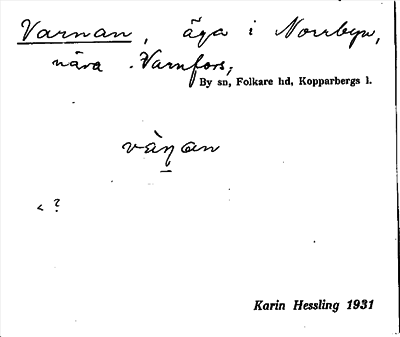 Varnan, äga i Norrbyn,
nära Varnfors,
By sn, Folkare hd, Kopparbergs l.
vàṇan
< ?
Karin Hessling 1931